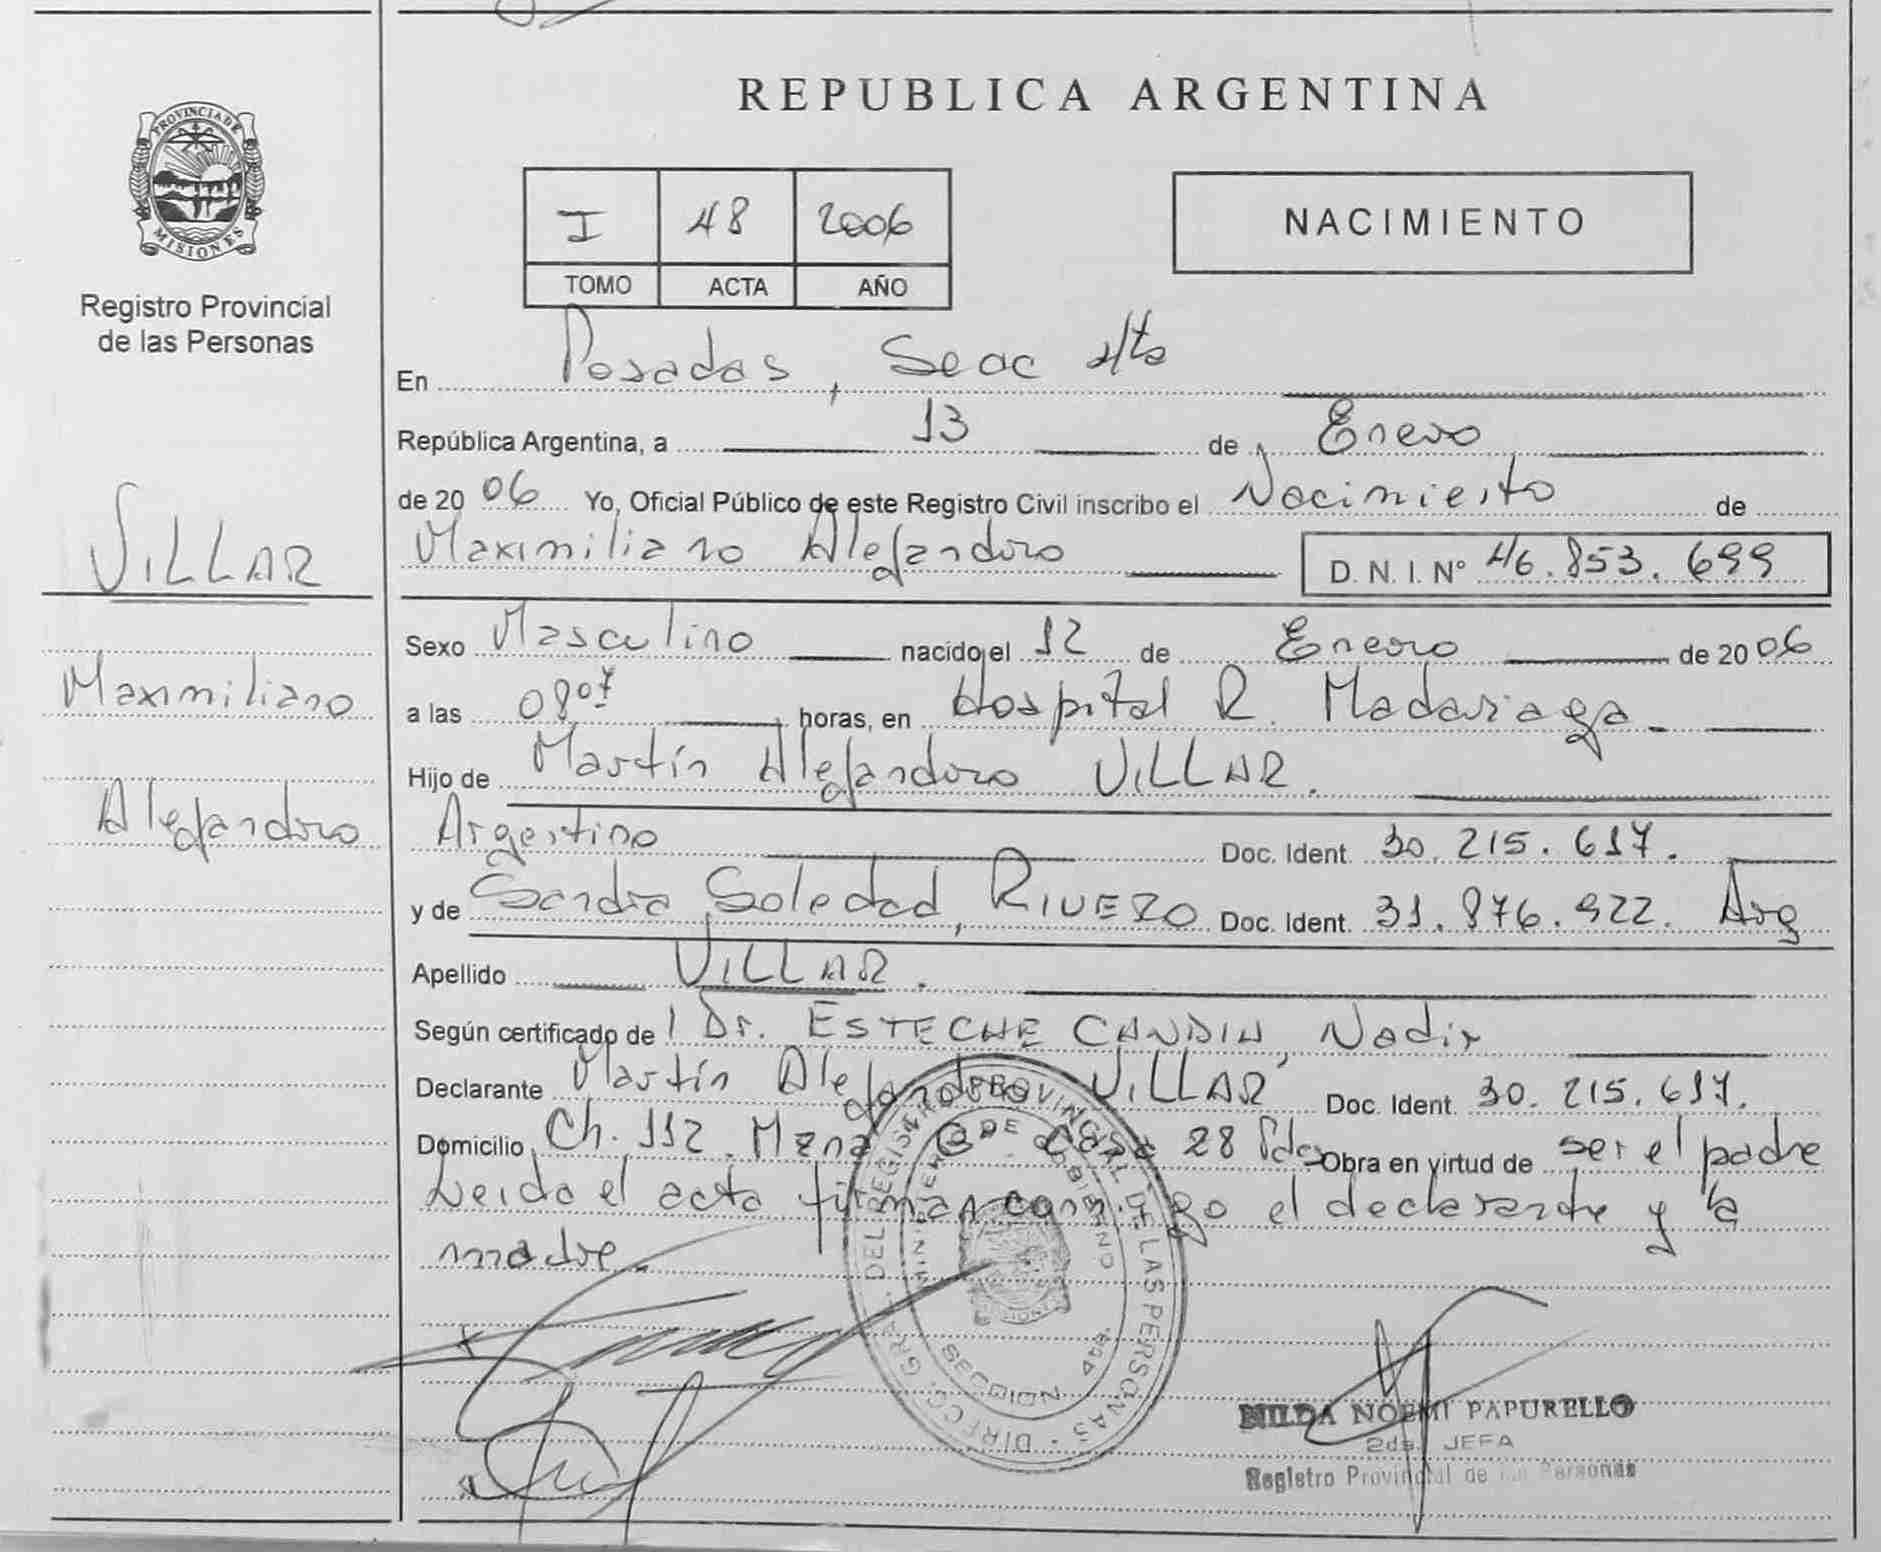 REPUBLICA ARGENTINA
PROVINCIA DE
MISIONES
Registro Provincial
de las Personas
I 48 2006
TOMO ACTA AÑO
NACIMIENTO
VILLAR
Maximiliano
Alejandro
En Posadas, Secc 4ta
República Argentina, a 13 de Enero
de 2006 Yo, Oficial Público de este Registro Civil inscribo el Nacimiento de
Maximiliano Alejandro D. N. I. Nº 46.853.699
Sexo Masculino nacido el 12 de Enero de 2006
a las 08 07 horas, en Hospital R. Madariaga
Hijo de Martín Alejandro VILLAR.
Argentino Doc. Ident. 30.215.617.
y de Sandra Soledad, RIVERO Doc. Ident. 31.876.922. Arg
Apellido VILLAR.
Según certificado de Dr. ESTECHE CANDIA, Nadir
Declarante Martín Alejandro VILLAR Doc. Ident. 30.215.617.
Domicilio Ch. 112. Mzna Casa 28 Pdas Obra en virtud de ser el padre
Leida el acta firman conmigo el declarante y la
madre.
DIRECC. GRAL. DEL REGISTRO PROVINCIAL DE LAS PERSONAS
MINISTERIO DE GOBIERNO
SECCION 4ta.
MISIONES
HILDA NOEMI PAPURELLO
2da. JEFA
Registro Provincial de las Personas